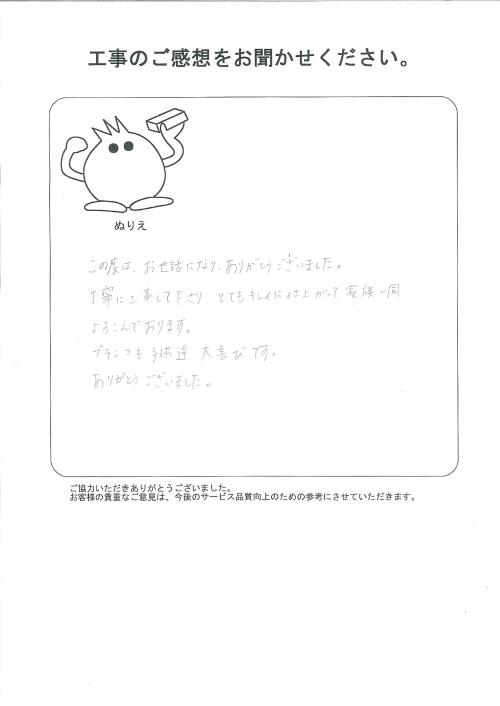 工事のご感想をお聞かせください。
ぬりえ
この度は、お世話になり、ありがとうございました。
丁寧に工事して下さり とてもキレイに仕上がって 家族一同
よろこんでおります。
ブランコも 子供達 大喜びです。
ありがとうございました。
ご協力いただきありがとうございました。
お客様の貴重なご意見は、今後のサービス品質向上のための参考にさせていただきます。